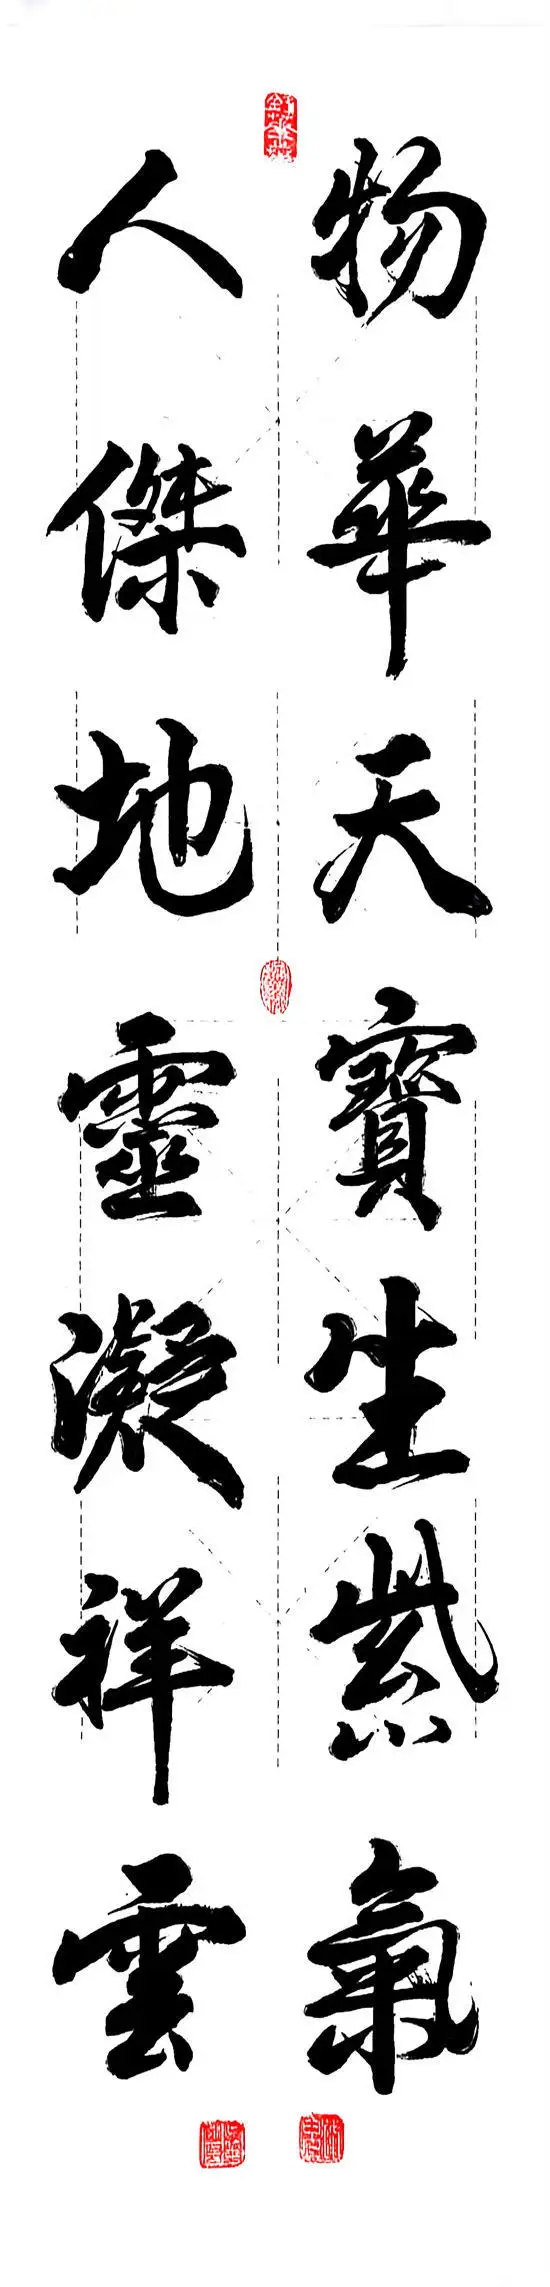 物華天寶生紫氣
人傑地靈凝祥雲